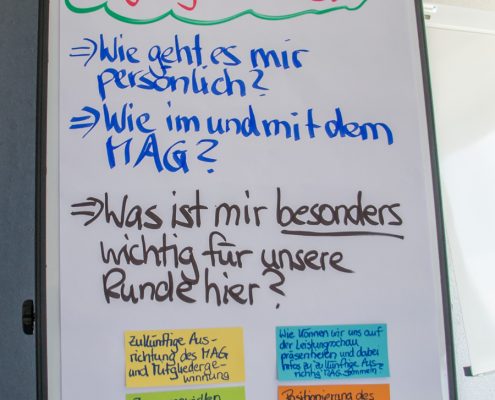 ⇒ Wie geht es mir
persönlich?
⇒ Wie im und mit dem
MAG?
⇒ Was ist mir besonders
wichtig für unsere
Runde hier?
Zukünftige Aus-
richtung des MAG
und Mitgliederge-
winnung
Wie können wir uns auf
der Leistungsschau
präsentieren und dabei
Infos zu zukünftige Aus-
Positionierung des